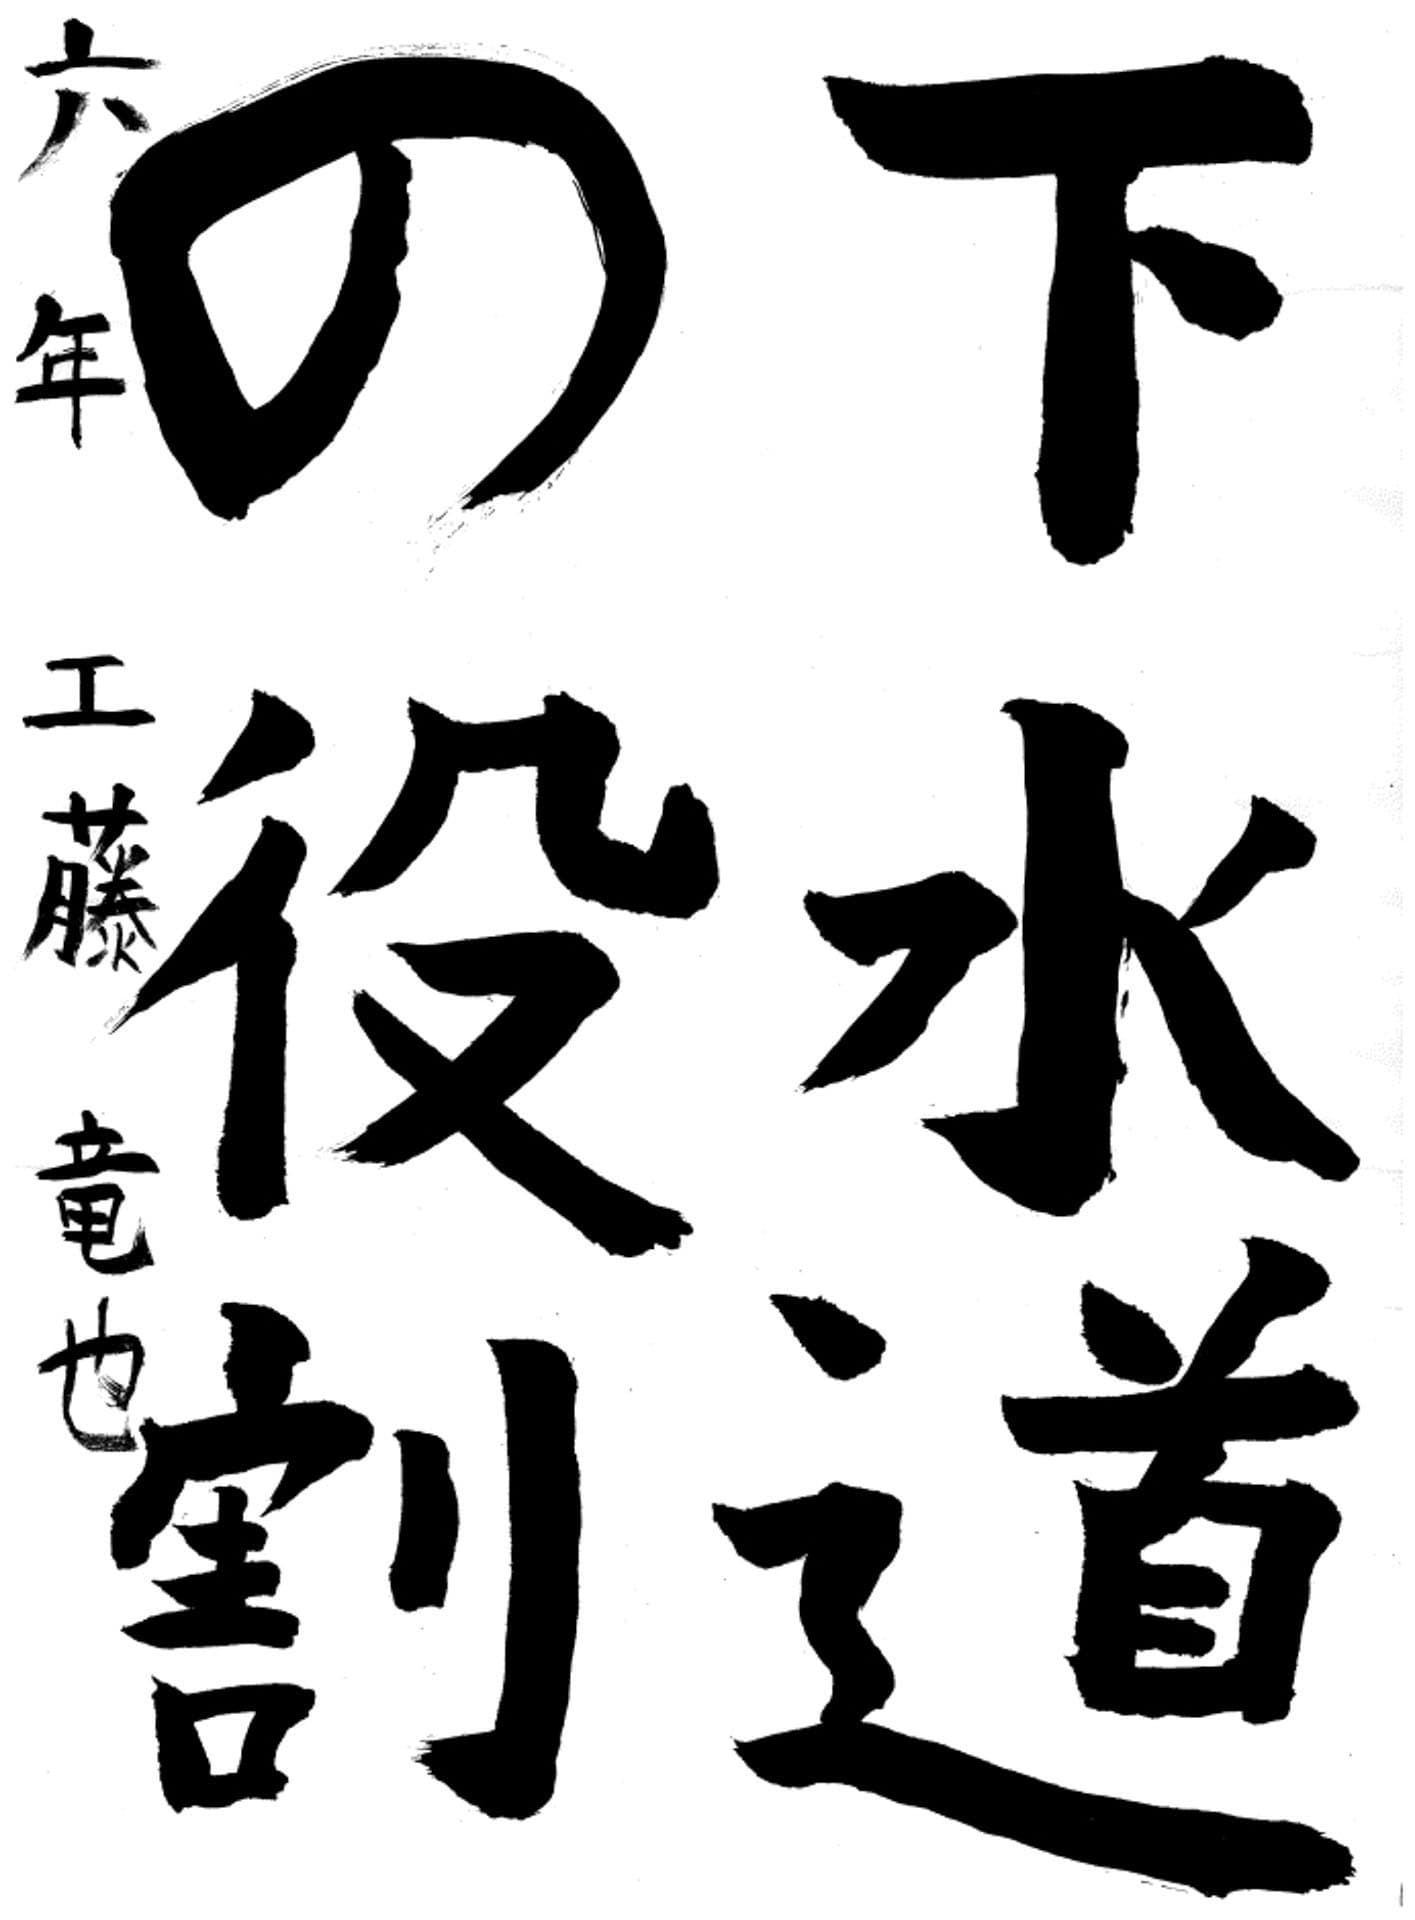 下水道
の役割
六年 工藤竜也